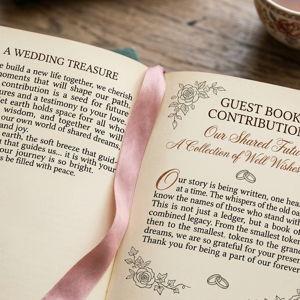 A WEDDING TREASURE
we build a new life together, we cherish
moments that will shape our path.
contribution is a seed for future
ures and a testimony to your love.
et earth holds space for all who
wisdom, and together we will
our own world of shared dreams
and joy.
earth, the soft breeze that guid-
that guides us... it is with your
our journey is so bright.
be filled with peace.
GUEST BOOK
CONTRIBUTION
Our Shared Futu
A Collection of Well Wishes
Our story is being written, one hear
at a time. The whispers of the old oa
know the names of those who stand with
This is not just a ledger, but a book of
combined legacy. From the smallest token
then to the smallest. tokens to the grand
dreams, we are so grateful for your presen
Thank you for being a part of our forever